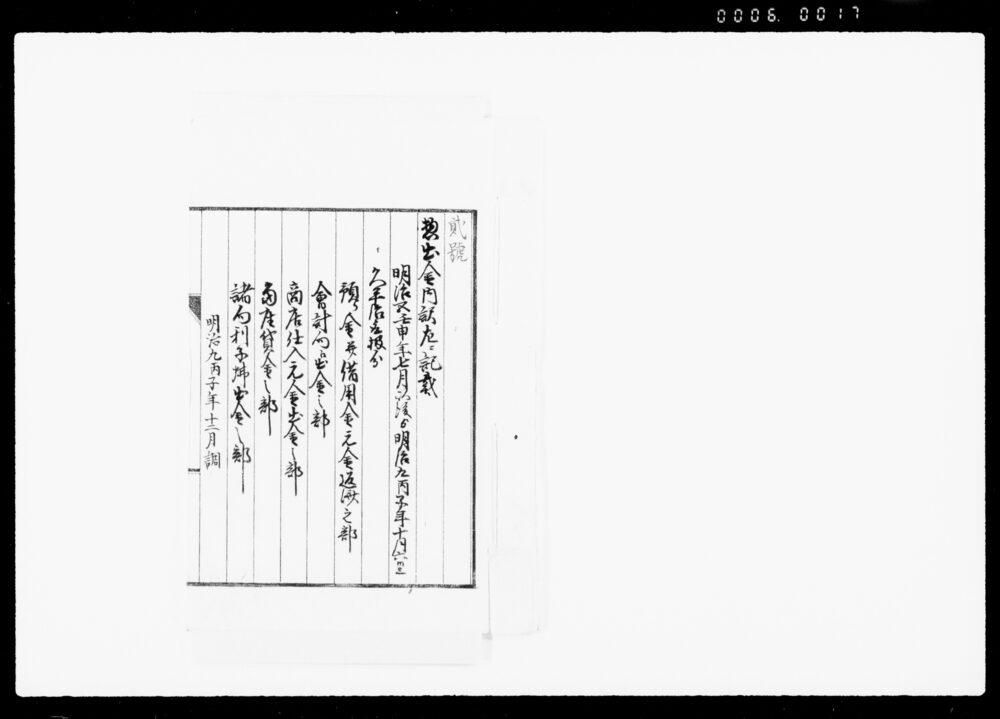 0006. 0017
貳號
惣出金内訳左ニ記載
明治五壬申年七月以後ゟ明治九丙子年十月
預り金并借用金元金返済之部
會計向出金之部
商店仕入元金出金之部
貸金之部
諸向利子出金之部
明治九丙子年十二月調